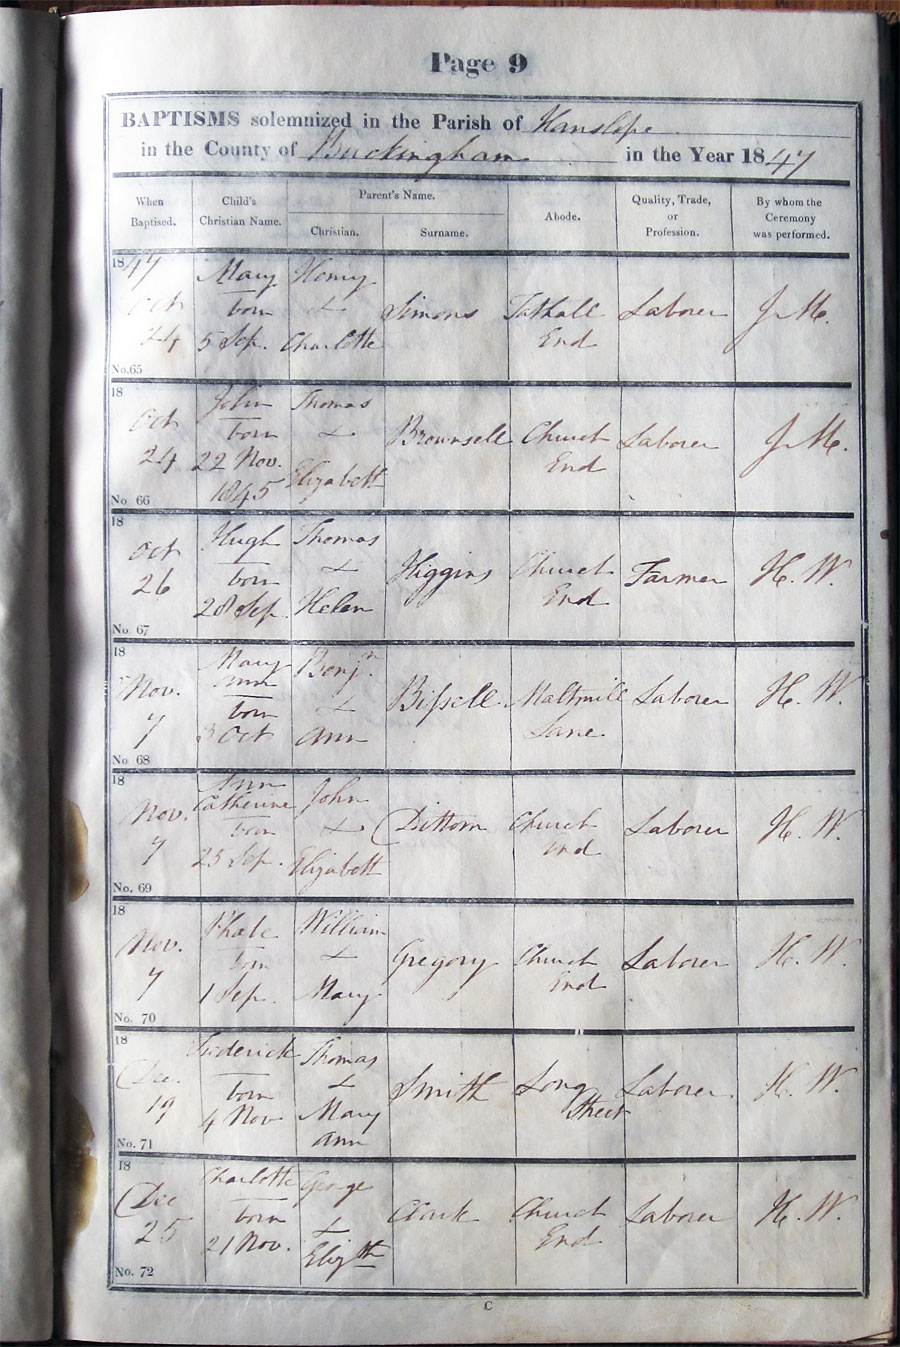 Page 9
BAPTISMS solemnized in the Parish of Hanslope
in the County of Buckingham in the Year 1847
When Baptised.
Child's Christian Name.
Parent's Name.
Christian.
Surname.
Abode.
Quality, Trade, or Profession.
By whom the Ceremony was performed.
1847
Oct
24
No.65
Mary
born
5 Sep.
Henry
&
Charlotte
Simons
Tathall
End
Laborer
J. M.
18
Oct
24
No. 66
John
born
22 Nov.
1845
Thomas
&
Elizabeth
Brownsell
Church
End
Laborer
J. M.
18
Oct
26
No. 67
Hugh
born
28 Sep.
Thomas
&
Helen
Higgins
Church
End
Farmer
H. W.
18
Nov.
7
No. 68
Mary
Ann
born
3 Oct
Benjn.
&
Ann
Bissell
Maltmill
Lane
Laborer
H. W.
18
Nov.
7
No. 69
Ann
Catherine
born
25 Sep.
John
&
Elizabeth
Dittom
Church
End
Laborer
H. W.
18
Nov.
7
No. 70
born
1 Sep.
William
&
Mary
Gregory
Church
End
Laborer
H. W.
18
Dec.
19
No. 71
Frederick
born
4 Nov
Thomas
&
Mary
Ann
Smith
Long
Street
Laborer.
H. W.
18
Dec
25
No. 72
Charlotte
born
21 Nov.
George
&
Elizth
Clark
Church
End
Laborer
H. W.
C